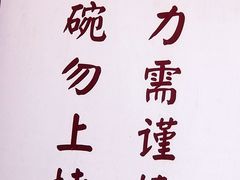 力需谨
碗勿上